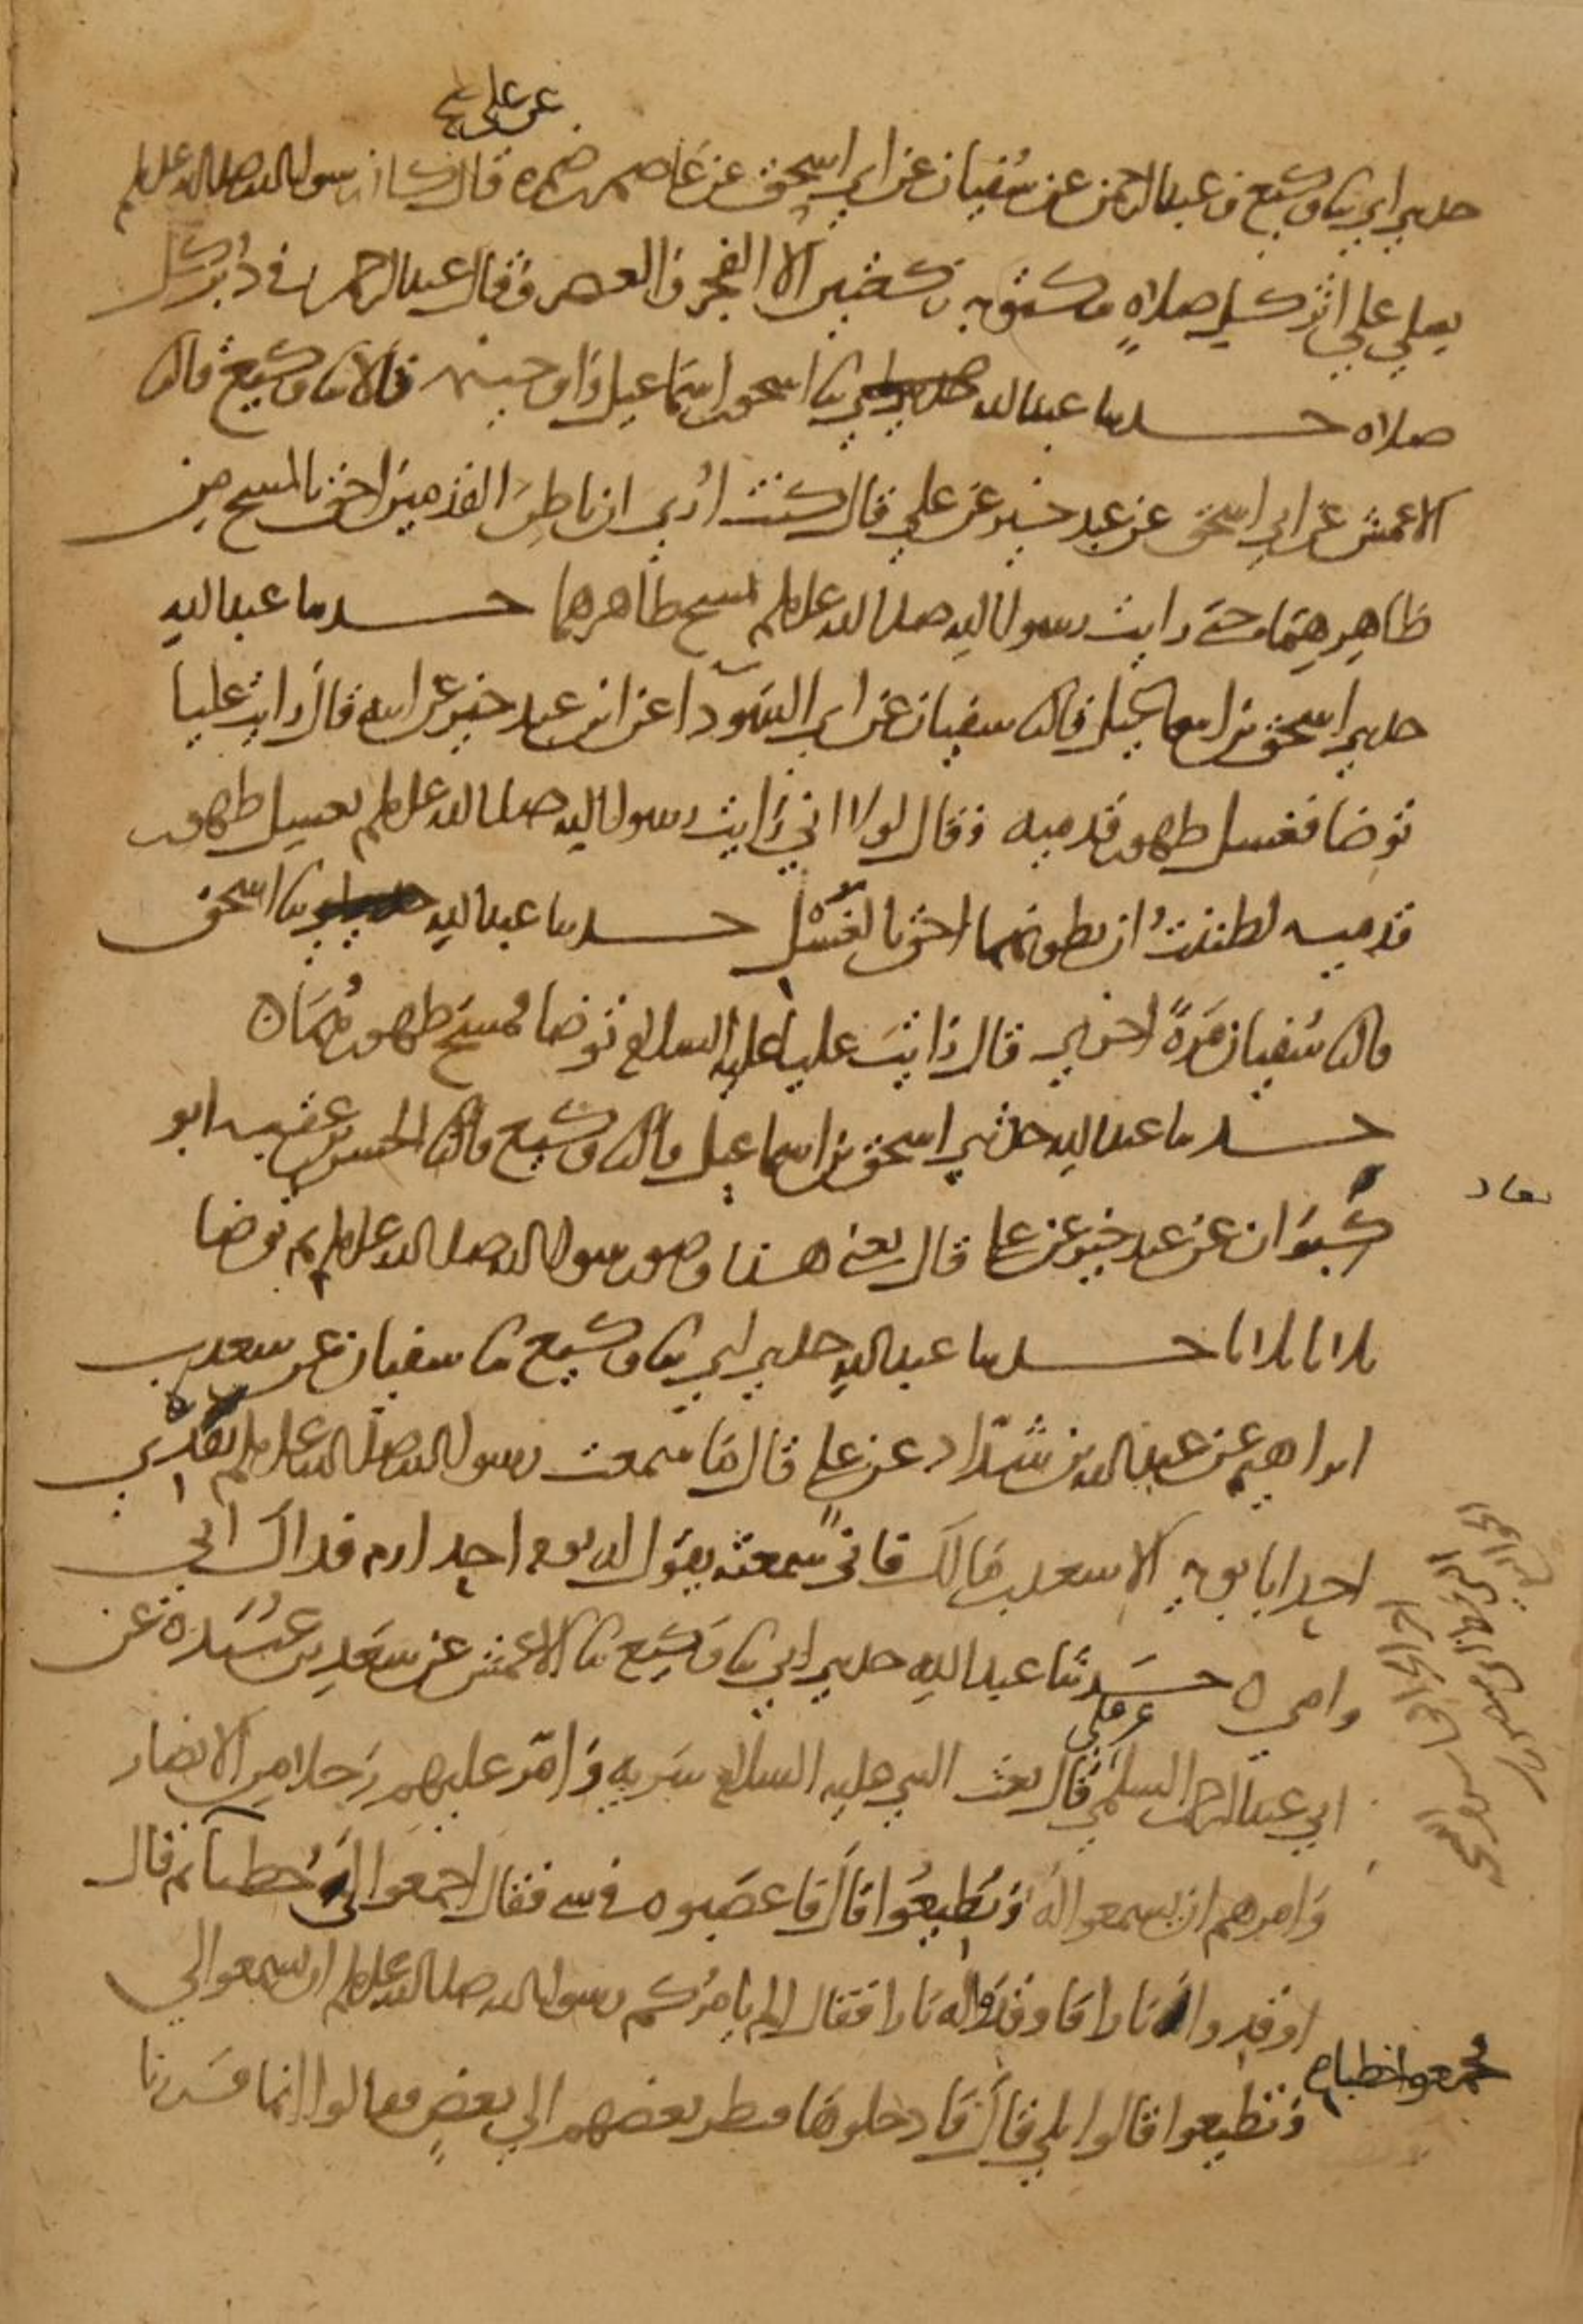 عن علي
حدثني ابي ثنا وكيع وعبد الرحمن عن سفيان عن ابي اسحق عن عاصم بن ضمرة قال كان رسول الله صلى الله عليه وسلم
يصلي على اثر كل صلاة مكتوبة ركعتين الا الفجر والعصر وقال عبد الرحمن في دبر كل
صلاة حدثنا عبد الله ثنا اسحق بن اسماعيل وابو خيثمة قالا ثنا وكيع قال ثنا
الاعمش عن ابي اسحق عن عبد خير عن علي قال كنت ارى ان باطن القدمين احق بالمسح من
ظاهرهما حتى رايت رسول الله صلى الله عليه وسلم يمسح ظاهرهما حدثنا عبد الله
حدثني اسحق بن اسماعيل قال ثنا سفيان عن ابي السوداء عن ابن عبد خير عن ابيه قال رايت عليا
توضا فغسل ظهور قدميه وقال لولا اني رايت رسول الله صلى الله عليه وسلم يغسل ظهور
قدميه لظننت ان بطونهما احق بالغسل حدثنا عبد الله ثنا اسحق
قال ثنا سفيان مرة اخرى قال رايت عليا عليه السلام توضا فمسح ظهورهما ه
حدثنا عبد الله حدثني اسحق بن اسماعيل قال ثنا وكيع قال ثنا الحسن بن عقبة ابو
كبران عن عبد خير عن علي قال يعني هذا وضوء رسول الله صلى الله عليه وسلم ثم توضا
ثلاثا ثلاثا حدثنا عبد الله حدثني ابي ثنا وكيع ثنا سفيان عن سعد بن
ابراهيم عن عبد الله بن شداد عن علي قال ما سمعت رسول الله صلى الله عليه وسلم يفدي
احدا بابويه الا سعد بن مالك فاني سمعته يقول له يوم احد ارم فداك ابي
وامي ه حدثنا عبد الله حدثني ابي ثنا وكيع ثنا الاعمش عن سعد بن عبيدة عن
عن علي
ابي عبد الرحمن السلمي قال بعث النبي عليه السلام سرية وامر عليهم رجلا من الانصار
وامرهم ان يسمعوا له ويطيعوا قال فاعصبوه في شي فقال اجمعوا لي حطبا ثم قال
اوقدوا نارا فاوقدوا له نارا فقال الم يامركم رسول الله صلى الله عليه وسلم ان تسمعوا لي
فجمعوا حطبا
وتطيعوا قالوا بلى قال فادخلوها فنظر بعضهم الى بعض فقالوا انما فررنا